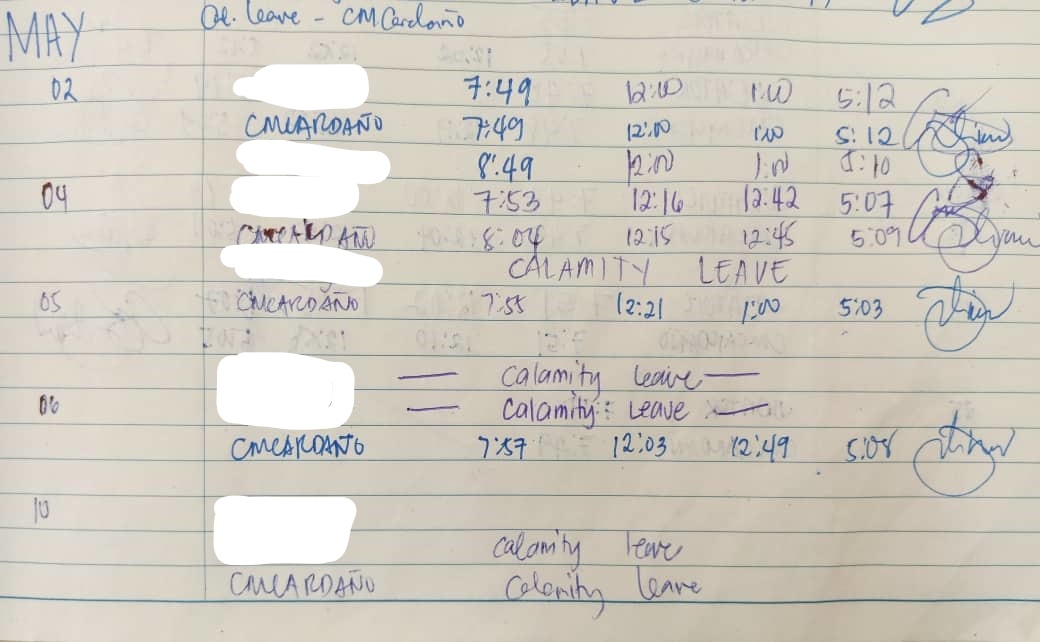 MAY
Cal. leave - CMCardaño
02 7:49 12:00 1:00 5:12
CMCARDAÑO 7:49 12:00 1:00 5:12
8:49 12:00 1:00 5:10
04 7:53 12:16 12:42 5:07
CMCARDAÑO 8:04 12:15 12:45 5:09
CALAMITY LEAVE
05 CMCARDAÑO 7:55 12:21 1:00 5:03
— Calamity leave —
06 — Calamity Leave —
CMCARDAÑO 7:57 12:03 12:49 5:08
10
calamity leave
CMCARDAÑO Calamity leave